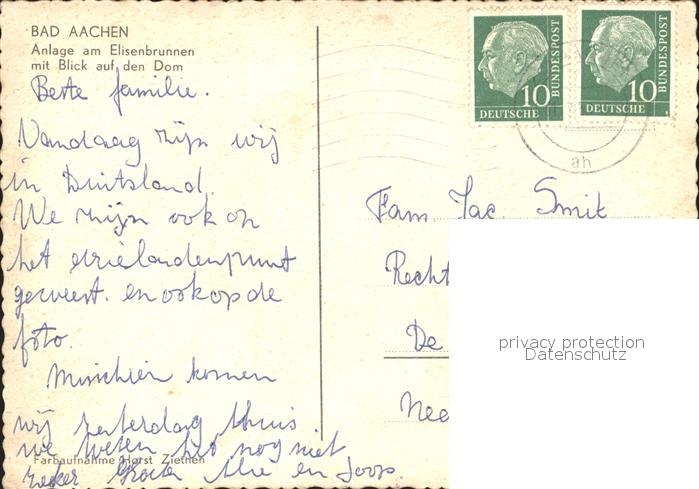 BAD AACHEN
Anlage am Elisenbrunnen
mit Blick auf den Dom
Beste familie.
Vandaag zijn wij
in Duitsland.
We zijn ook op
het drielandenpunt
geweest. en ook op de
foto.
Misschien komen
wij zaterdag thuis
we weten het nog niet
zeker Groeten en Joop.
Farbaufnahme Horst Ziethen
10
DEUTSCHE
BUNDESPOST
10
DEUTSCHE
BUNDESPOST
ah
Fam. Jac. Smit
Recht
De
Nee
privacy protection
Datenschutz